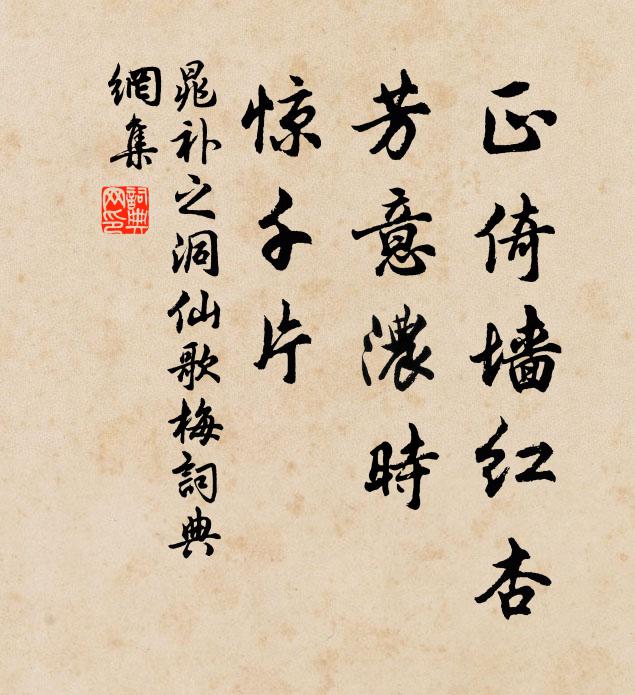 正倚墙红杏
芳意濃時
惊千片
晁补之洞仙歌梅詞典
網集
詞典网印